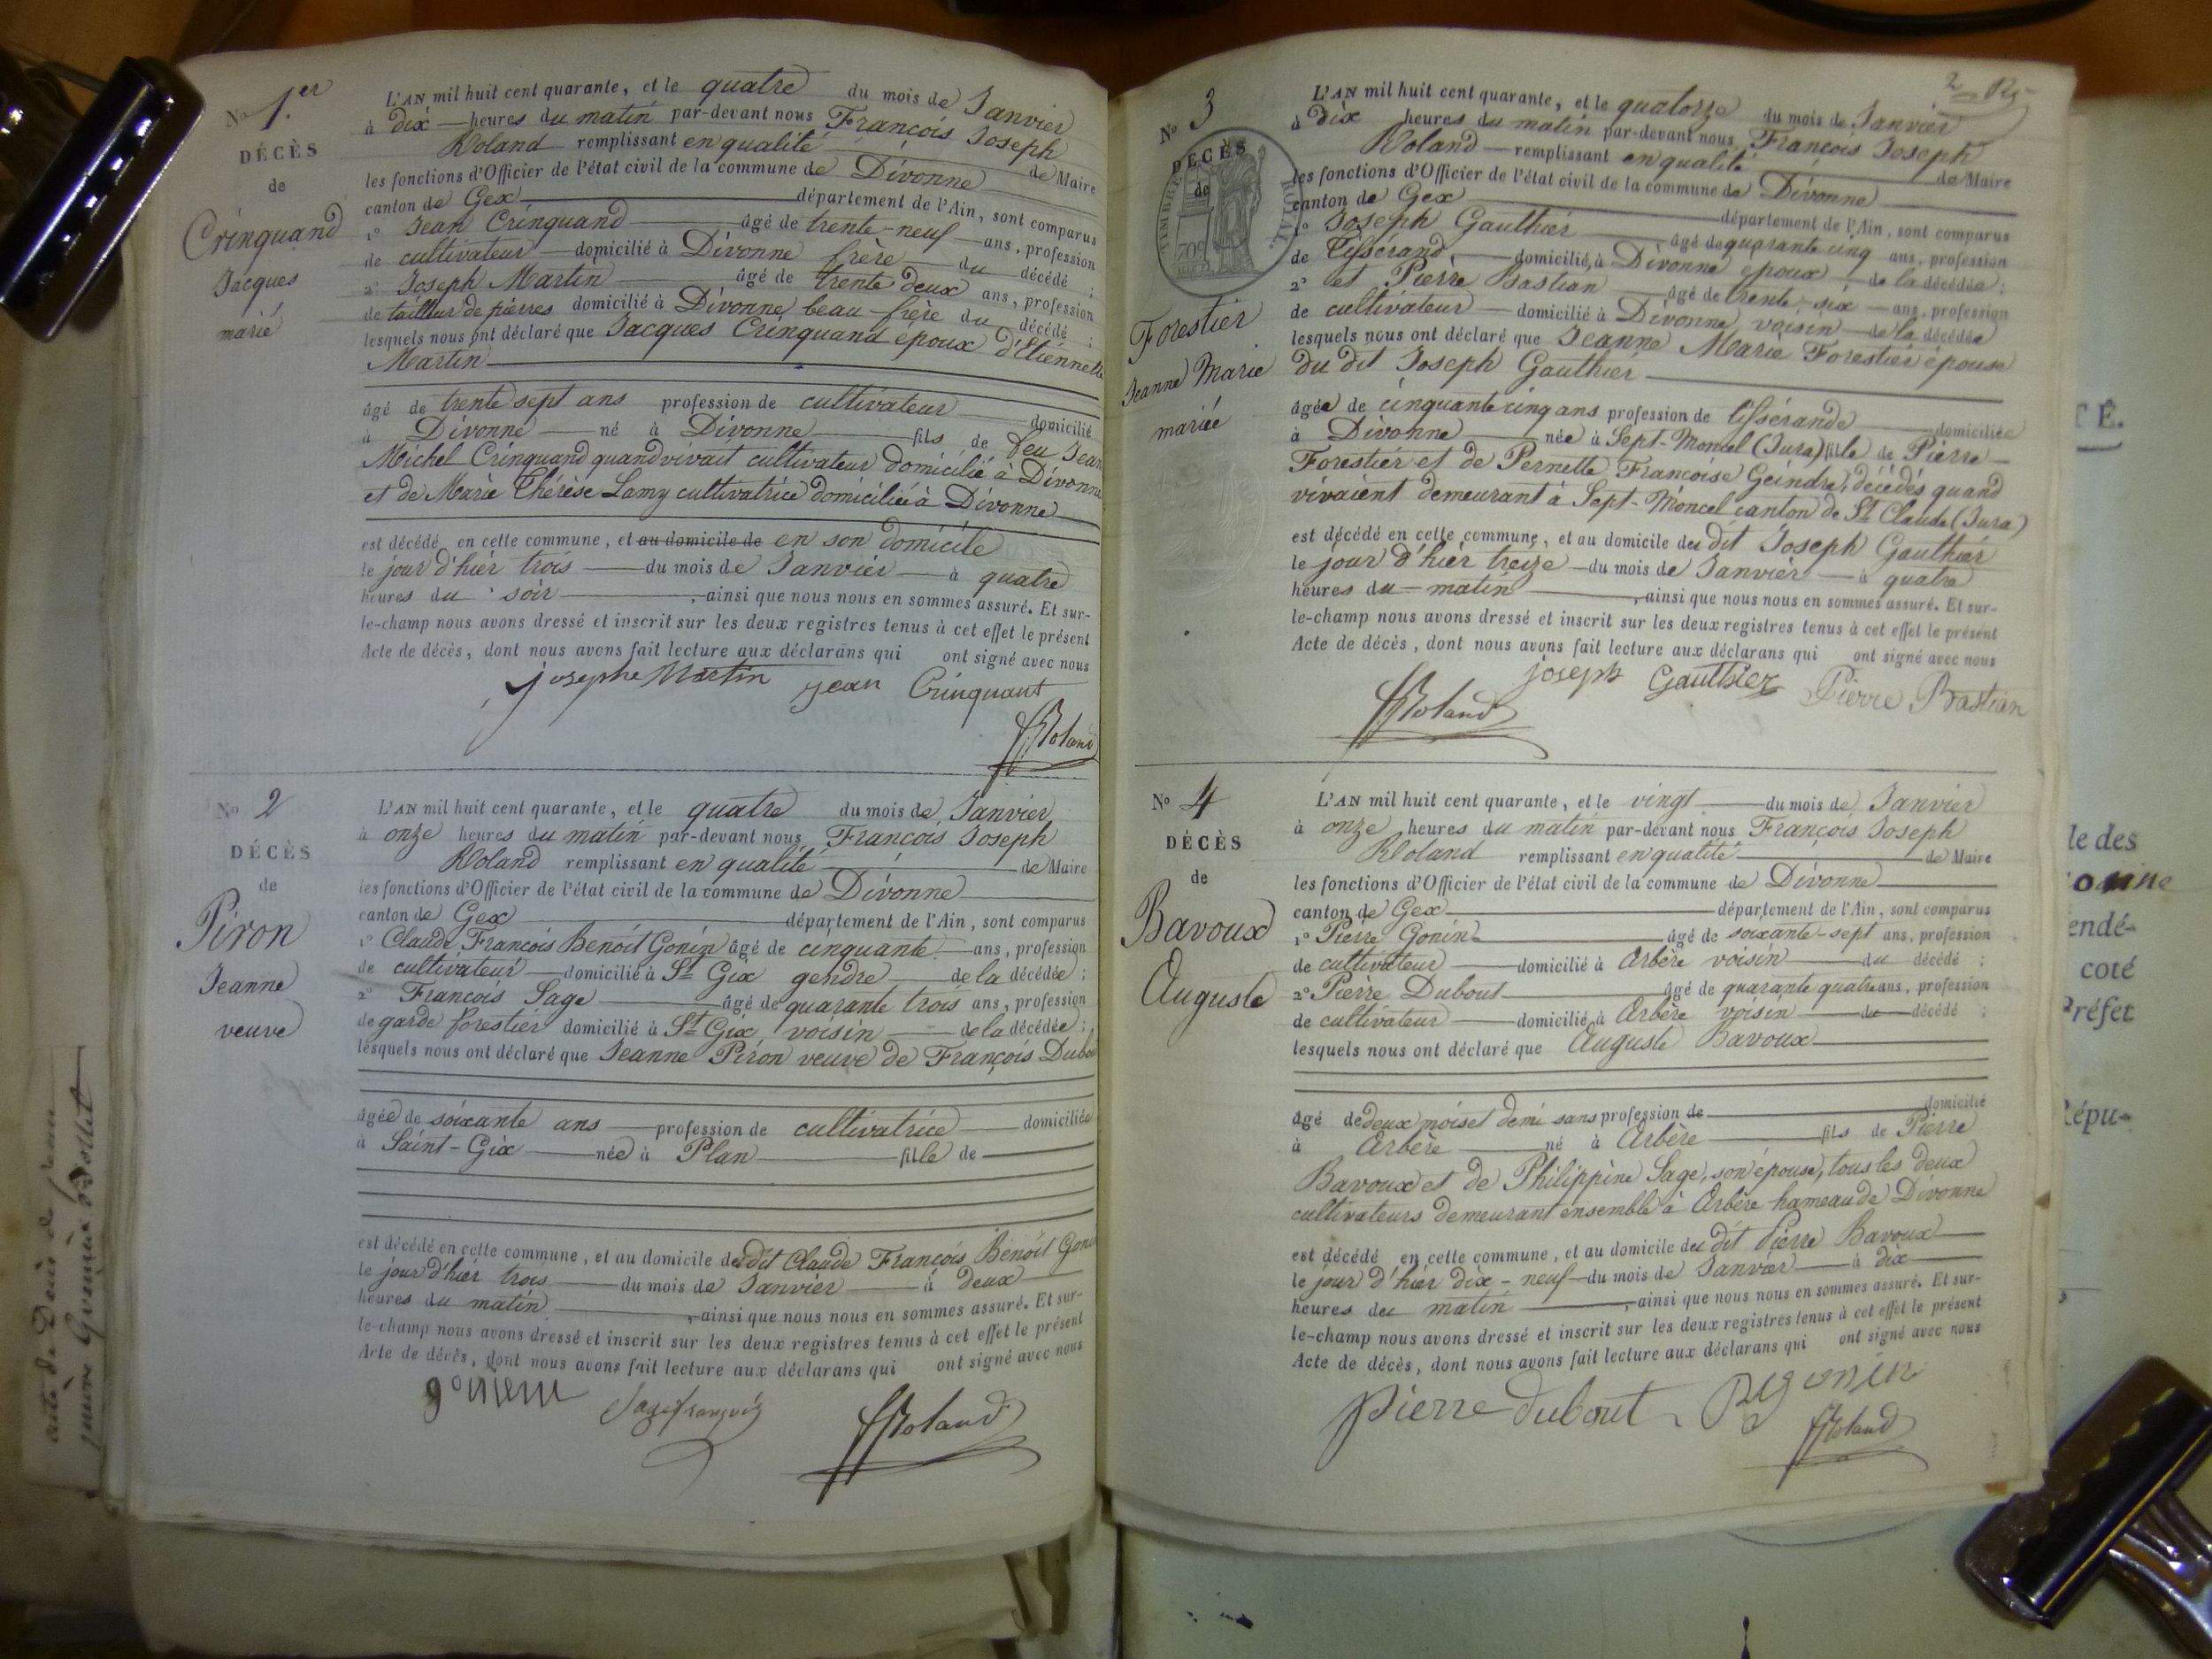 No 1.er
DÉCÈS
de
Crinquand
Jacques
marié
L'AN mil huit cent quarante, et le quatre du mois de Janvier
à dix heures du matin par-devant nous François Joseph
Roland remplissant en qualité de Maire
les fonctions d'Officier de l'état civil de la commune de Divonne
canton de Gex département de l'Ain, sont comparus
1° Jean Crinquand âgé de trente-neuf ans, profession
de cultivateur domicilié à Divonne frère du décédé ;
2° Joseph Martin âgé de trente deux ans, profession
de tailleur de pierres domicilié à Divonne beau-frère du décédé ;
lesquels nous ont déclaré que Jacques Crinquand époux d'Etiennette
Martin
âgé de trente sept ans profession de cultivateur domicilié
à Divonne né à Divonne fils de feu Jean
Michel Crinquand quand vivait cultivateur domicilié à Divonne
et de Marie Thérèse Lamy cultivatrice domiciliée à Divonne
est décédé en cette commune, et au domicile de en son domicile
le jour d'hier trois du mois de Janvier à quatre
heures du soir, ainsi que nous nous en sommes assuré. Et sur-
le-champ nous avons dressé et inscrit sur les deux registres tenus à cet effet le présent
Acte de décès, dont nous avons fait lecture aux déclarans qui ont signé avec nous
josephe Martin jean Crinquant
Roland
No 2
DÉCÈS
de
Piron
Jeanne
veuve
L'AN mil huit cent quarante, et le quatre du mois de Janvier
à onze heures du matin par-devant nous François Joseph
Roland remplissant en qualité de Maire
les fonctions d'Officier de l'état civil de la commune de Divonne
canton de Gex département de l'Ain, sont comparus
1° Claude François Benoit Gonin âgé de cinquante ans, profession
de cultivateur domicilié à St Gix gendre de la décédée ;
2° François Sage âgé de quarante trois ans, profession
de garde forestier domicilié à St Gix voisin de la décédée ;
lesquels nous ont déclaré que Jeanne Piron veuve de François
âgée de soixante ans profession de cultivatrice domiciliée
à Saint-Gix née à Plan fille de
est décédé en cette commune, et au domicile du dit Claude François Benoit
le jour d'hier trois du mois de Janvier à deux
heures du matin, ainsi que nous nous en sommes assuré. Et sur-
le-champ nous avons dressé et inscrit sur les deux registres tenus à cet effet le présent
Acte de décès, dont nous avons fait lecture aux déclarans qui ont signé avec nous
Sage françois Roland
No 3
DÉCÈS
de
TIMBRE
709
Forestier
Jeanne Marie
mariée
L'AN mil huit cent quarante, et le quatorze du mois de Janvier
à dix heures du matin par-devant nous François Joseph
Roland remplissant en qualité de Maire
les fonctions d'Officier de l'état civil de la commune de Divonne
canton de Gex département de l'Ain, sont comparus
1° Joseph Gauthier âgé de quarante cinq ans, profession
de tisserand, domicilié à Divonne époux de la décédée ;
2° et Pierre Bastian âgé de trente-six ans, profession
de cultivateur domicilié à Divonne voisin de la décédée
lesquels nous ont déclaré que Jeanne Marie Forestier épouse
du dit Joseph Gauthier
âgée de cinquante cinq ans profession de tisserande domiciliée
à Divonne née à Sept-Moncel (Jura) fille de Pierre
Forestier et de Pernette Françoise Geindre, décédés quand
vivaient demeurant à Sept-Moncel canton de St Claude (Jura)
est décédé en cette commune, et au domicile du dit Joseph Gauthier
le jour d'hier treize du mois de Janvier à quatre
heures du matin, ainsi que nous nous en sommes assuré. Et sur-
le-champ nous avons dressé et inscrit sur les deux registres tenus à cet effet le présent
Acte de décès, dont nous avons fait lecture aux déclarans qui ont signé avec nous
joseph Gauthier Pierre Bastian
Roland
No 4
DÉCÈS
de
Bavoux
Auguste
L'AN mil huit cent quarante, et le vingt du mois de Janvier
à onze heures du matin par-devant nous François Joseph
Roland remplissant en qualité de Maire
les fonctions d'Officier de l'état civil de la commune de Divonne
canton de Gex département de l'Ain, sont comparus
1° Pierre Gonin âgé de soixante-sept ans, profession
de cultivateur domicilié à Arbère voisin du décédé ;
2° Pierre Dubout âgé de quarante quatre ans, profession
de cultivateur domicilié à Arbère voisin de décédé ;
lesquels nous ont déclaré que Auguste Bavoux
âgé de deux mois et demi sans profession de domicilié
à Arbère né à Arbère fils de Pierre
Bavoux et de Philippine Sage, son épouse, tous les deux
cultivateurs demeurant ensemble à Arbère hameau de Divonne
est décédé en cette commune, et au domicile du dit Pierre Bavoux
le jour d'hier dix-neuf du mois de Janvier à dix
heures du matin, ainsi que nous nous en sommes assuré. Et sur-
le-champ nous avons dressé et inscrit sur les deux registres tenus à cet effet le présent
Acte de décès, dont nous avons fait lecture aux déclarans qui ont signé avec nous
pierre dubout gonin
Roland
TÉ.
le des
onne
endé-
coté
Préfet
Répu-
acte de Décès de